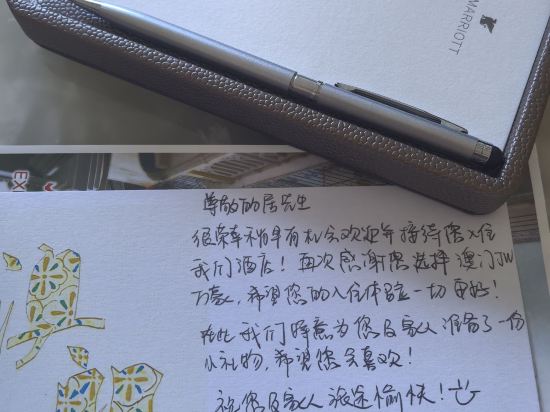 MARRIOTT
EX
尊敬的居先生
很荣幸有机会欢迎并接待您入住
我们酒店！再次感谢您选择澳门JW
万豪，希望您的入住体验一切更好！
在此我们特意为您及家人准备了一份
小礼物，希望您会喜欢！
祝您及家人旅途愉快！